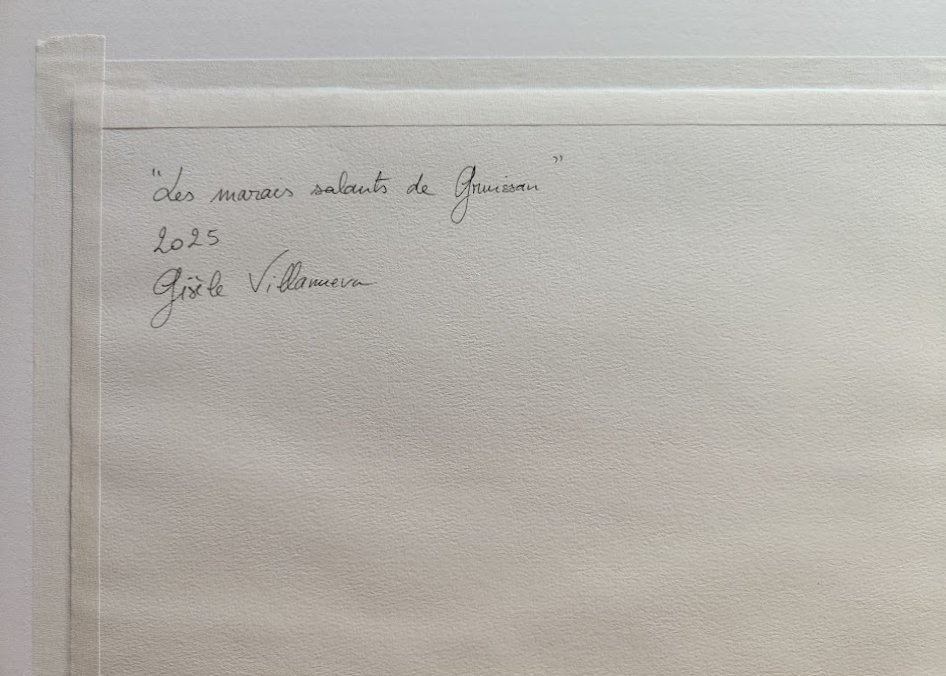 "Les marais salants de Gruissan"
2025
Gisèle Villanueva